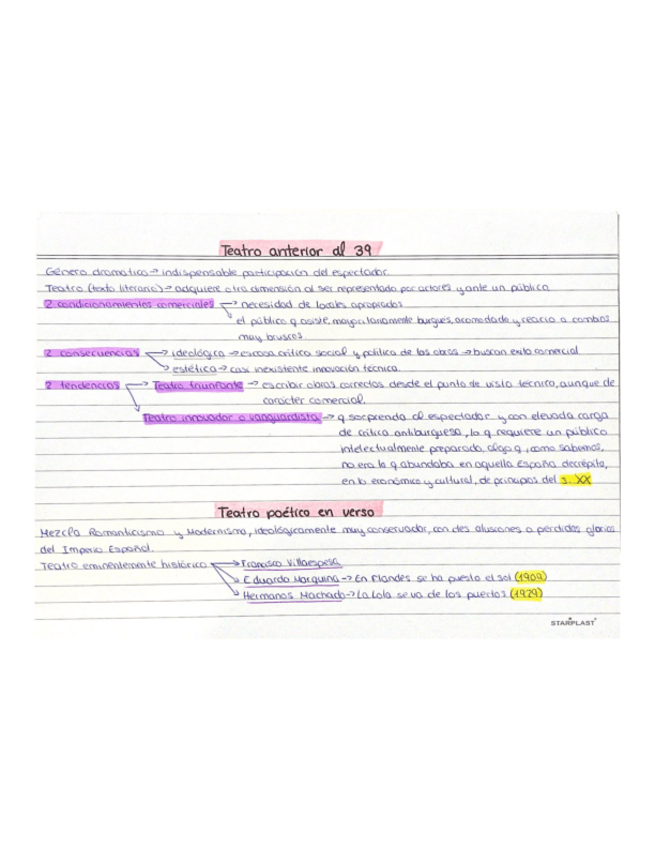 Teatro anterior al 39
Género dramático → indispensable participación del espectador.
Teatro (texto literario) → adquiere otra dimensión al ser representado por actores y ante un público.
2 condicionamientos comerciales → necesidad de locales apropiados
el público q asiste, mayoritariamente burgués, acomodado y reacio a cambios
muy bruscos.
2 consecuencias → ideológica → escasa crítica social y política de las obras → buscan éxito comercial.
estética → casi inexistente innovación técnica.
2 tendencias → Teatro triunfante → escribir obras correctas desde el punto de vista técnico, aunque de
carácter comercial.
Teatro innovador o vanguardista → q sorprenda al espectador y con elevada carga
de crítica antiburguesa, lo q requiere un público
intelectualmente preparado, algo q, como sabemos,
no era lo q abundaba en aquella España decrépita,
en lo económico y cultural, de principios del s. XX
Teatro poético en verso
Mezcla Romanticismo y Modernismo, ideológicamente muy conservador, con alusiones a perdidas glorias
del Imperio Español.
Teatro eminentemente histórico → Francisco Villaespesa
Eduardo Marquina → En Flandes se ha puesto el sol (1909)
Hermanos Machado → La Lola se va de los puertos (1929)
STARPLAST